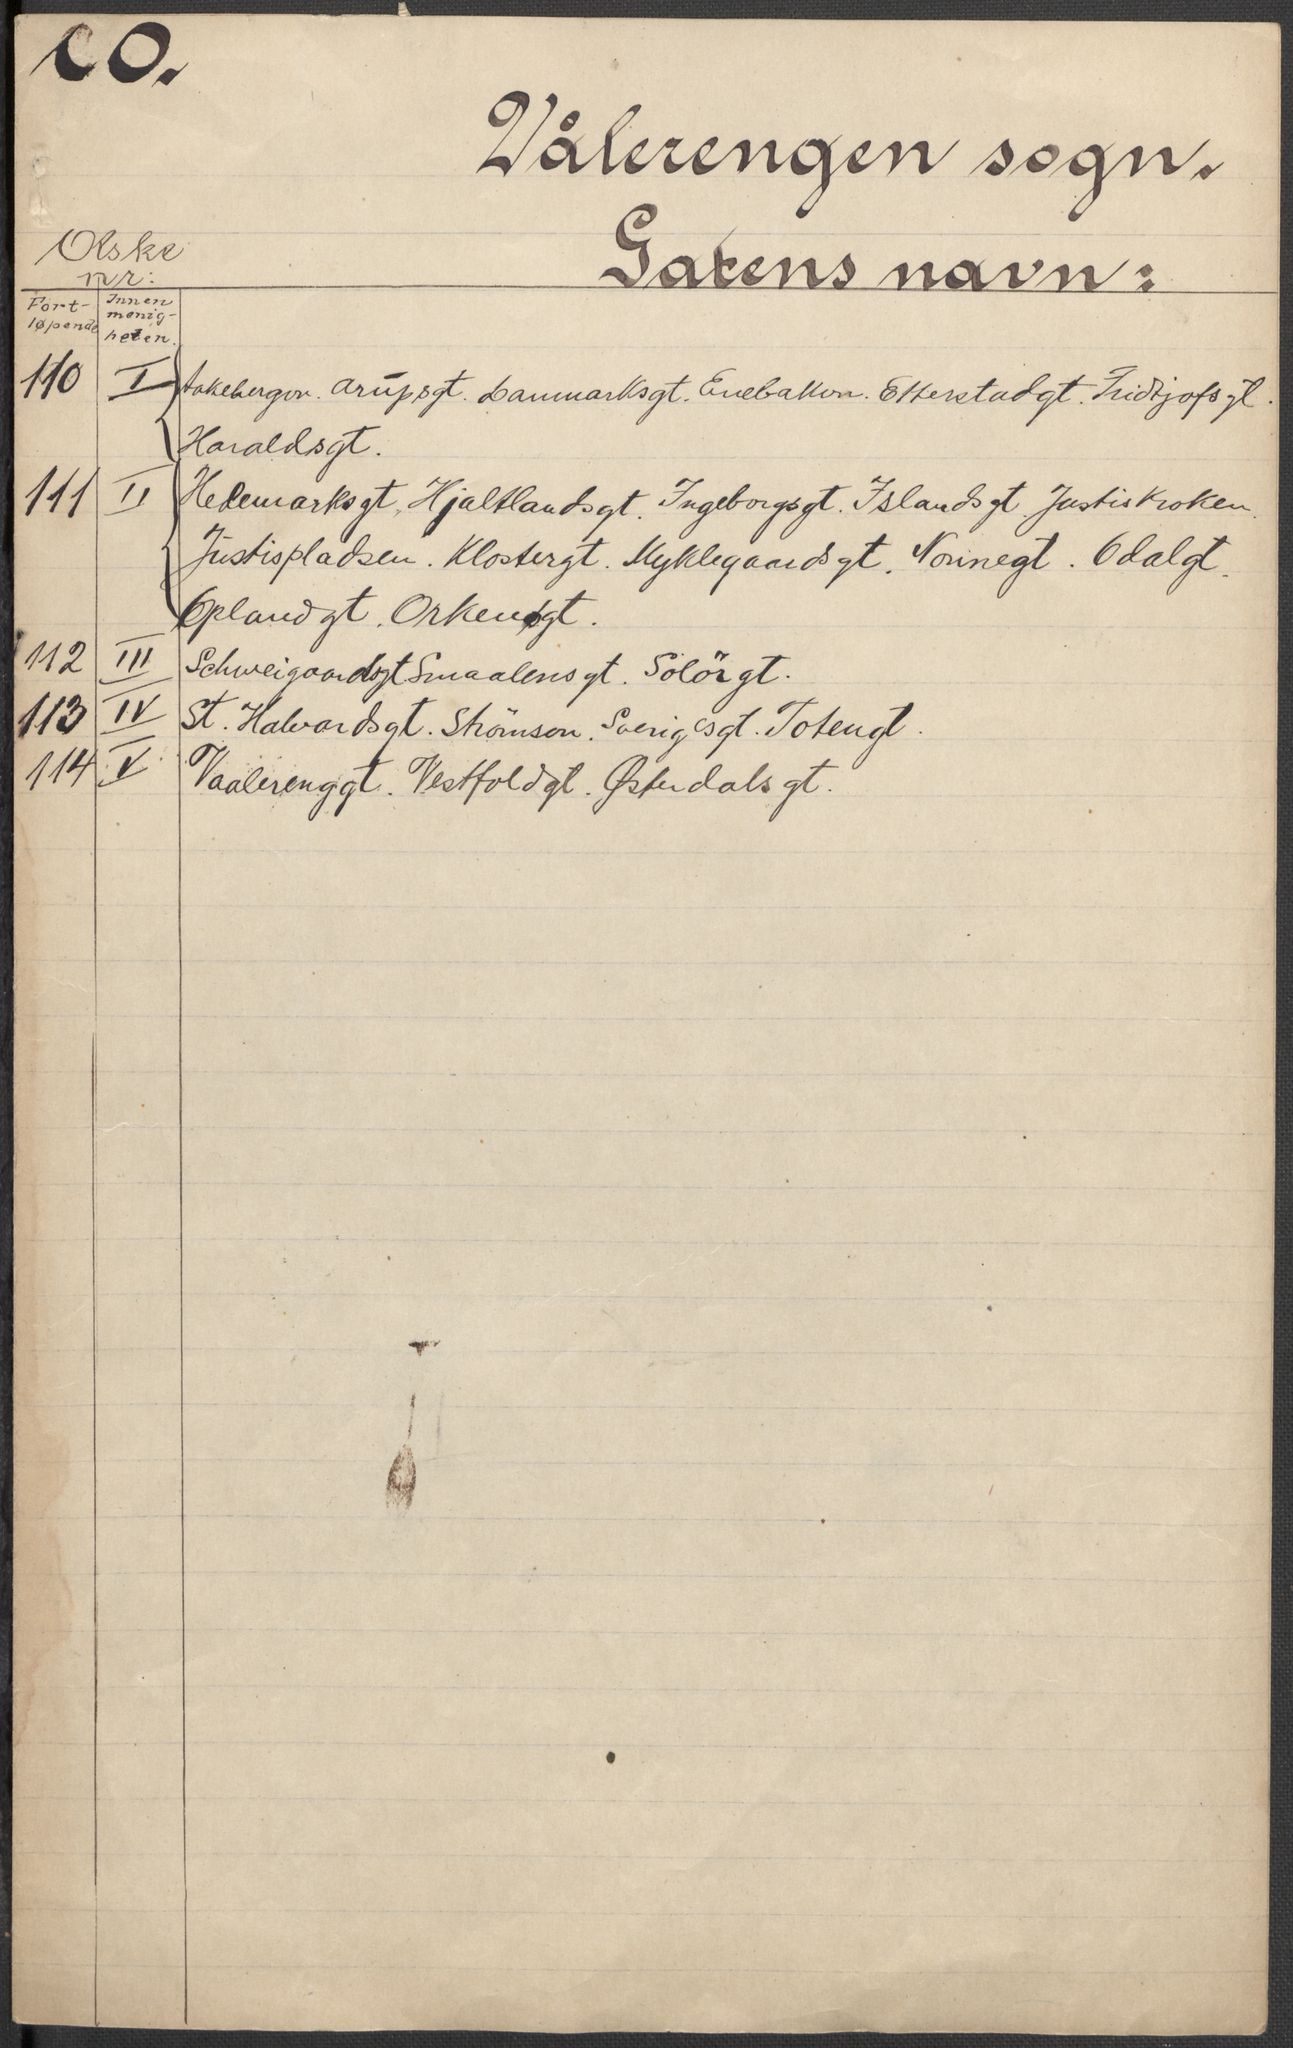 20.
Vålerengen sogn.
Gatens navn:
Æske
nr:
Fort-
løpende
Innen
menig-
heten.
110 I Aakebergvn. Arupsgt. Danmarksgt. Enebakvn. Etterstadgt. Fridtjofsgt.
Haraldsgt.
111 II Hedemarksgt, Hjaltlandsgt. Ingeborgsgt. Islandsgt. Justiskroken.
Justispladsen. Klostergt. Myklegaardsgt. Nonnegt. Odalgt.
Oplandgt. Orkenøgt.
112 III Schweigaardsgt Smaalensgt. Solörgt.
113 IV St. Halvardsgt. Strömsvn. Sverigesgt. Totengt.
114 V Vaalerenggt. Vestfoldgt. Østerdalsgt.